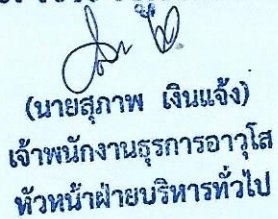 (นายสุภาพ เงินแจ้ง)
เจ้าพนักงานธุรการอาวุโส
หัวหน้าฝ่ายบริหารทั่วไป